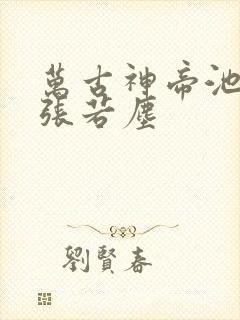 萬古神帝池
張若塵
劉賢春